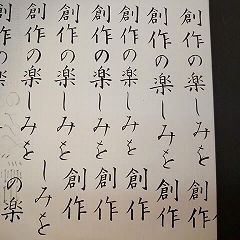 創作の楽しみを創作
創作の楽しみを創作
創作の楽しみを創作
創作の楽しみを創作
創作の楽しみを創作
創作の楽しみを
しみを
創作の
の楽